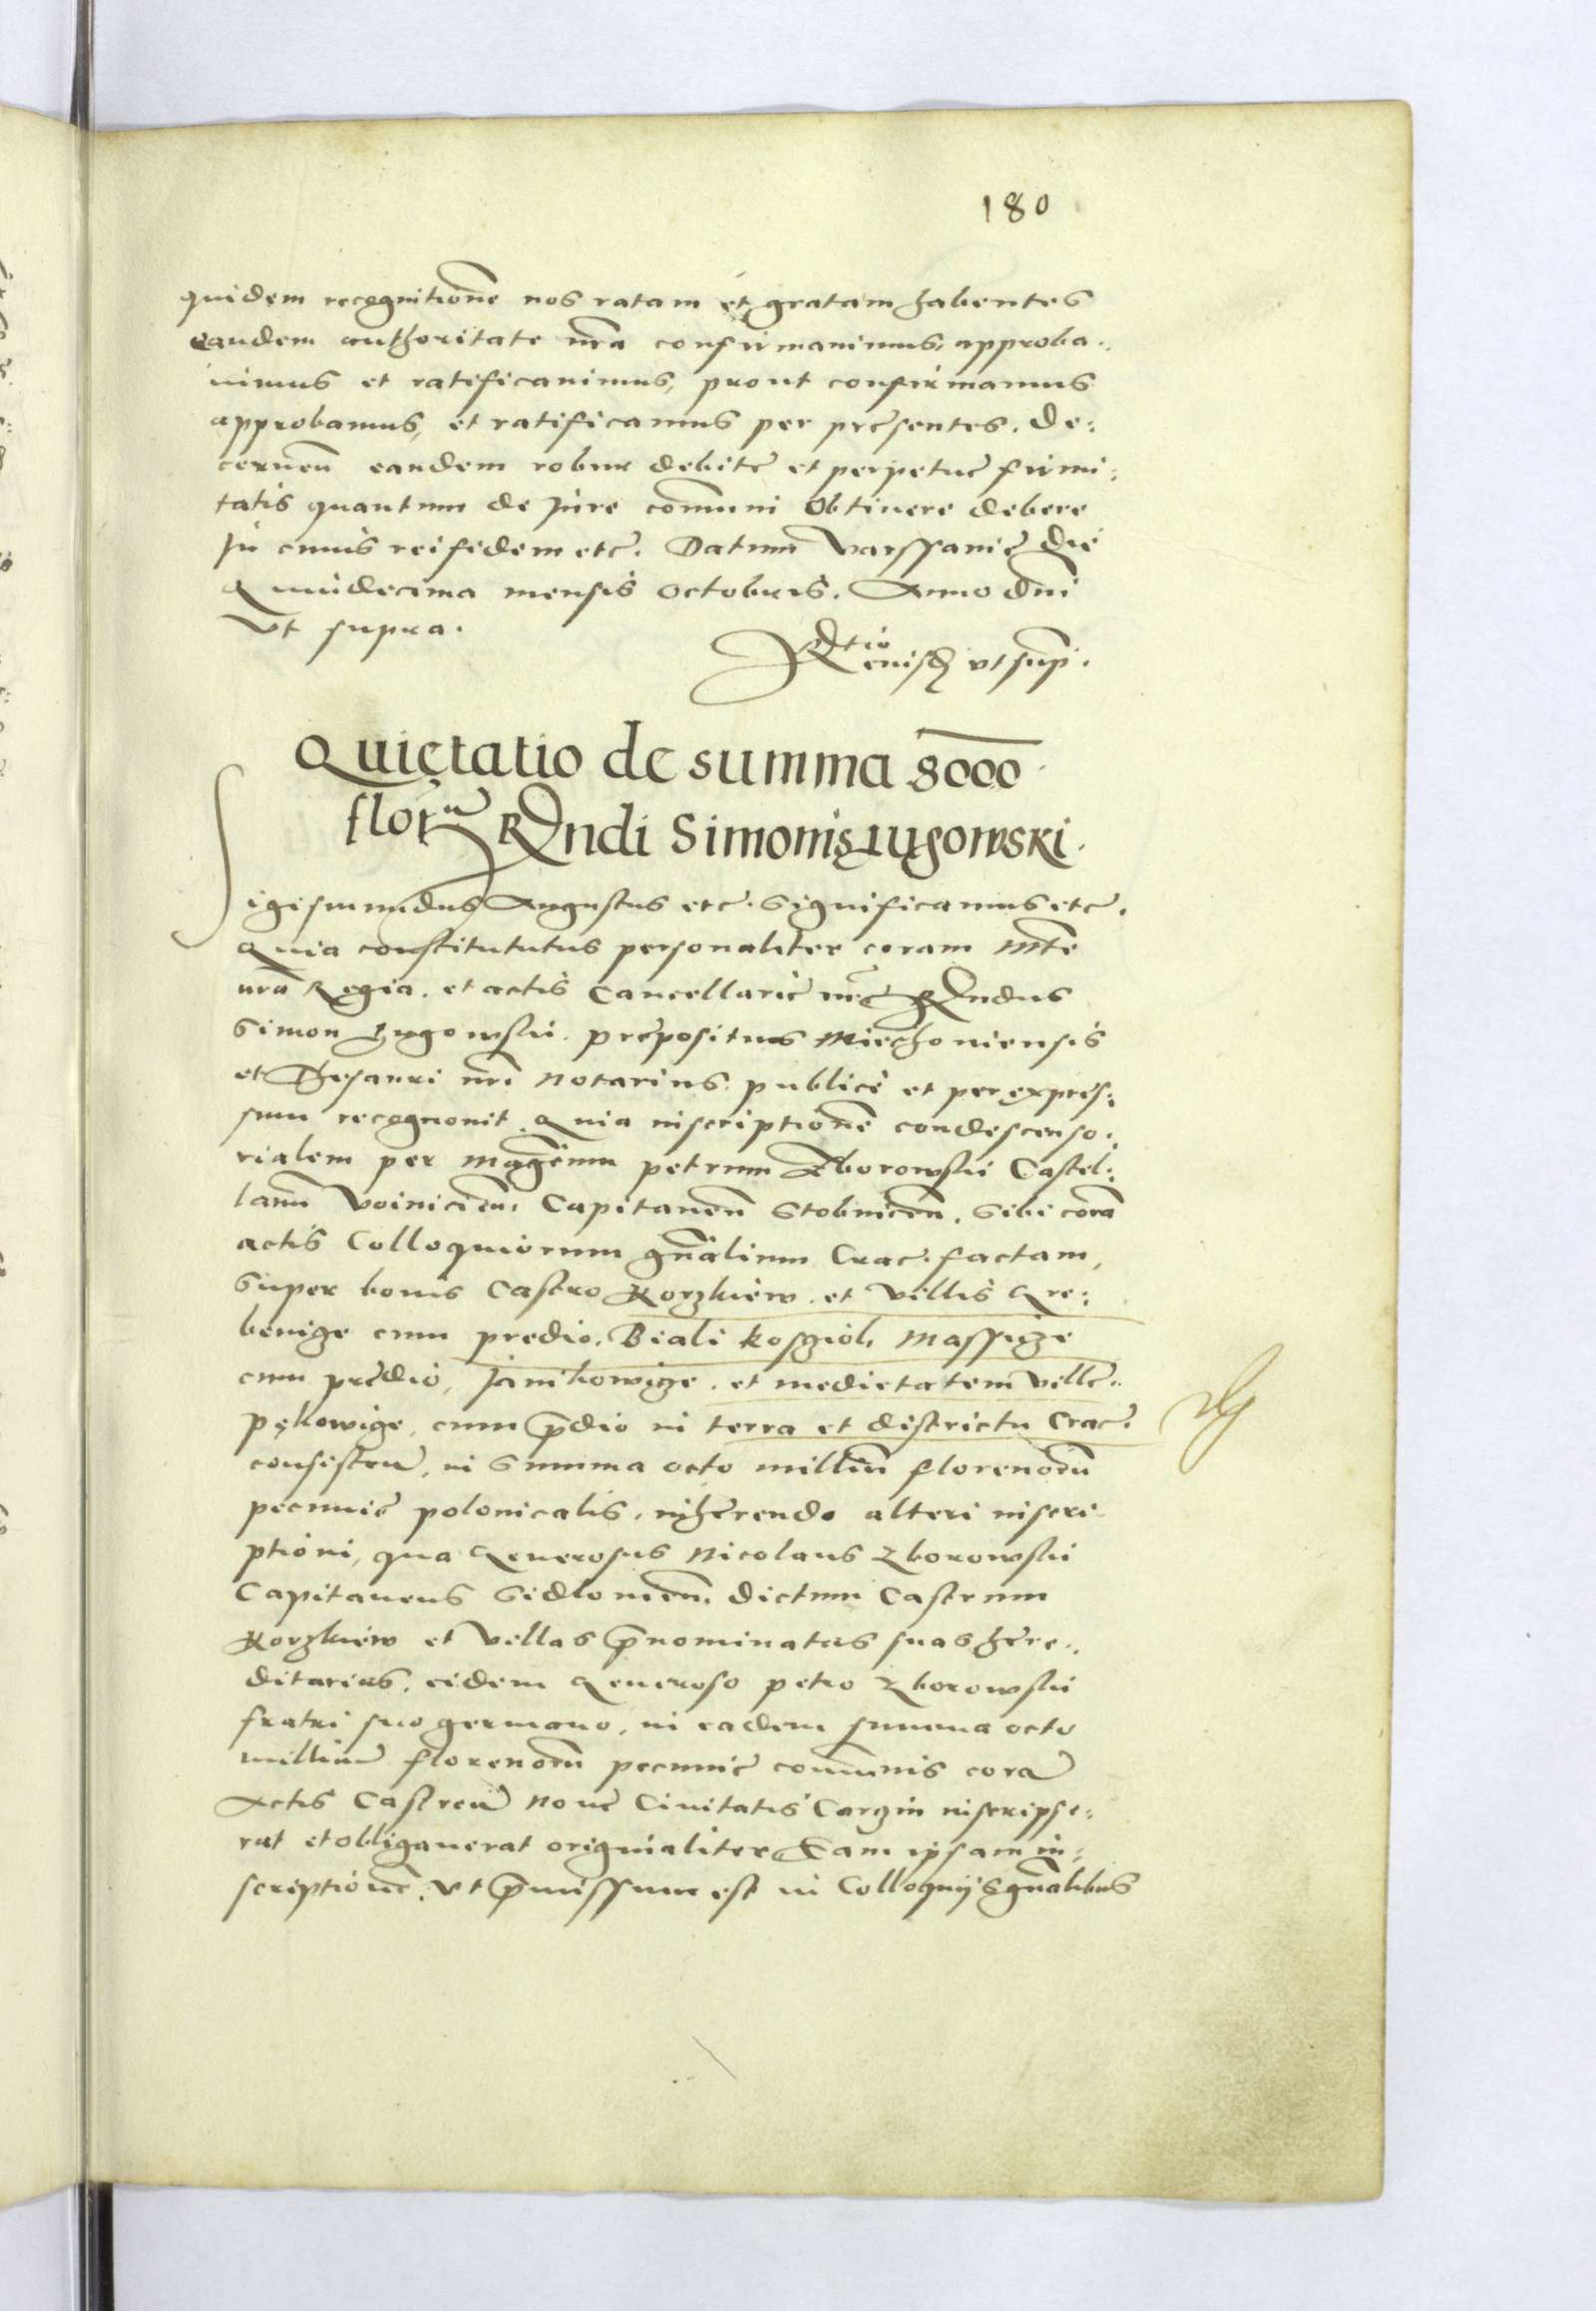 180
quidem recognitionē nos ratam et gratam habentes
eandem authoritate nrā confirmauimus, approba:
uimus et ratificauimus, prout confirmamus
approbamus, et ratificamus per presentes. De:
cernen̄ eandem robur debite et perpetue firmi:
tatis quantum de Jure comuni obtinere debere
In cuius rei fidem etc. Datum Varssauie die
Quindecima mensis Octobris. Anno dnī
Vt supra.
Rtio eiusd vt sup.
Quietatio de summa 8000
florū RDndi Simonis Lugowski.
Sigismundus Augustus etc. Significamus etc.
Quia constitututus personaliter coram Mte
nrā Regia. et actis Cancellarie nrē RDndus
Simon Lugowski. prepositus Miechouiensis
et Thesauri nrī Notarius. publice et per expres:
sum recognouit. Quia inscriptionē condescenso:
rialem per Magcum petrum Zborowski Castel:
lanū Voinicien̄. Capitaneū Stobnicen̄. sibi corā
actis Colloquiorum gnālium Crac. factam,
super bonis Castro Korzkiew. et villis Gre:
benize cum predio. Biali kosziol, Massize
cum predio, Janikowize. et medietatem ville
pękowize, cum prdio in terra et districtu Crac.
consisten̄, in summa octo milliū florenorū
pecunie polonicalis. inherendo alteri inscri
ptioni, qua Generosus Nicolaus Zborowski
Capitaneus Sidlouien̄. dictum Castrum
Korzkiew et villas prnominatas suas here:
ditarias. eidem Generoso petro Zborowski
fratri suo germano, in eadem summa octo
millium florenorū pecunie comunis corā
Actis Castren̄ Noue Ciuitatis Corzin inscripse:
rat et obligauerat originaliter Eam ipsam in:
scriptionē. vt prmissum est in Colloquijs gnālibus